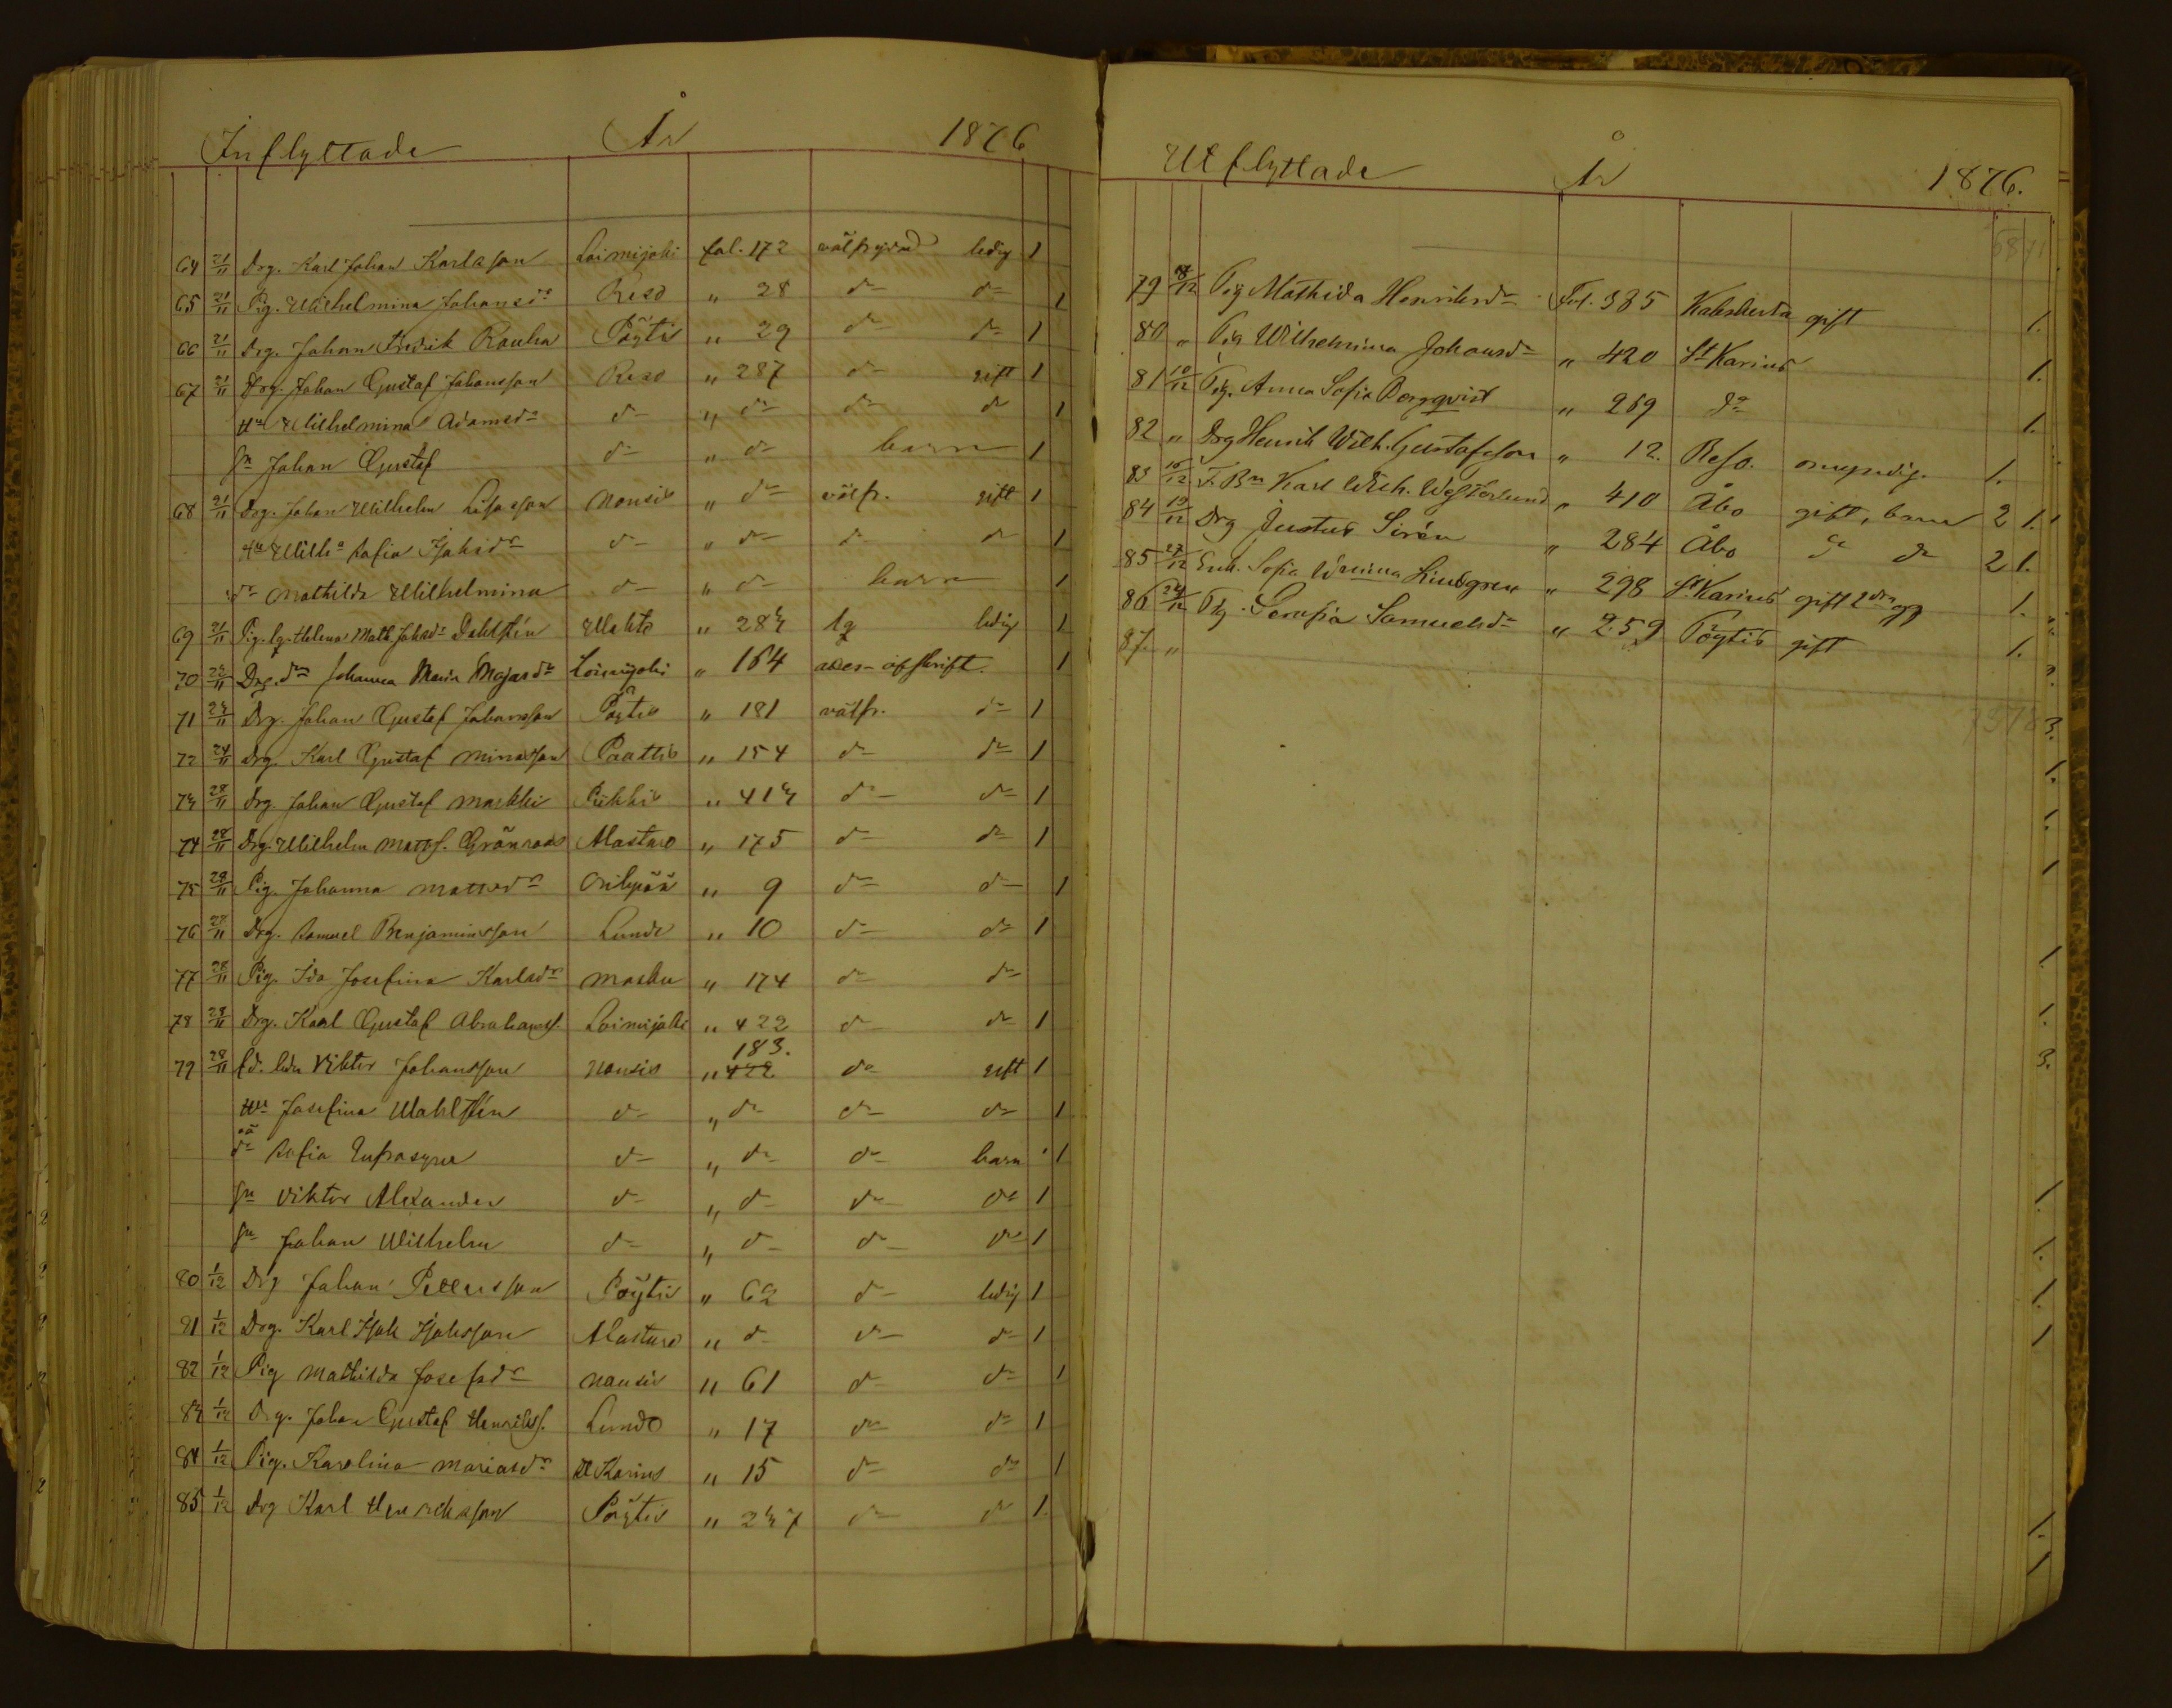 Inflyttade År 1876
64 21/11 Drg. Karl Johan Karlsson Loimijoki fol. 172 välfrejdad ledig 1
65 21/11 Pig. Wilhelmina Johansdr Reso " 28 do do 1
66 21/11 Drg. Johan Fredrik Rauha Pöytis " 29 do do 1
67 21/11 Drg. Johan Gustaf Johansson Reso " 287 do gift 1
Hu Wilhelmina Adamsdr do " do do do 1
Sn Johan Gustaf do " do barn 1
68 21/11 Drg. Johan Wilhelm Nousis " do välfr. gift 1
Hu Wilha Sofia Isaksdr do " do do do 1
dr Mathilda Wilhelmina do " do barn 1
69 21/11 Pig. Helena Math. Dahlstén Wahto " 283 lg ledig 1
70 24/11 Drg. dr Johanna Maria Majasdr Loimijoki " 164 afskrift. 1
71 24/11 Drg. Johan Gustaf Johansson Pöytis " 181 välfr. do 1
72 24/11 Drg. Karl Gustaf Minasson Paattis " 154 do do 1
73 28/11 Drg. Johan Gustaf Markki Pikkis " 413 do do 1
74 28/11 Drg. Wilhelm Matts. Grönroos Alastaro " 175 do do 1
75 28/11 Pig. Johanna Mattsdr Oripää " 9 do do 1
76 28/11 Drg. Samuel Benjaminsson Lundo " 10 do do 1
77 28/11 Pig. Ida Josefina Karlsdr Masku " 174 do do
78 28/11 Drg. Karl Gustaf Abrahamss. Loimijoki " 422 do do 1
183.
79 28/11 fd. Viktor Johansson Nousis " 422 do gift 1
Hu Josefina Wahlstén do " do do do 1
dr Sofia Eufrosyna do " do do barn 1
Sn Viktor Alexander do " do do do 1
Sn Johan Wilhelm do " do do do 1
80 1/12 Drg Johan Pettersson Pöytis " 62 do ledig 1
81 1/12 Drg. Karl Isak Isaksson Alastaro " do do do 1
82 1/12 Pig Mathilda Josefsdr Nousis " 61 do do 1
83 1/12 Drg. Johan Gustaf Henrikss. Lundo " 17 do do 1
84 1/12 Pig. Karolina Mariasdr St Karins " 15 do do 1
85 1/12 Drg Karl Henriksson Pöytis " 237 do do 1
Utflyttade År 1876.
68 71
79 Pig Mathilda Henriksdr Fol. 385 Kakskerta gift 1.
80 " Pig Wilhelmina Johansdr " 420 St Karins 1.
81 10/12 Pig. Anna Sofia Bergqvist " 269 do 1.
82 " Drg Henrik Wilh. Gustafsson " 12. Reso. omyndig. 1.
83 F. Bn Karl Wilh. Westerlund " 410 Åbo gift, barn 2 1.
84 19/12 Drg Justus Sirén " 284 Åbo do do 2 1.
85 27/12 Enk. Sofia Lindgren " 298 St Karins gift 2dra gg 1.
86 Pig. Serafia Samuelsdr " 259 Pöytis gift 1.
87. "
75 78